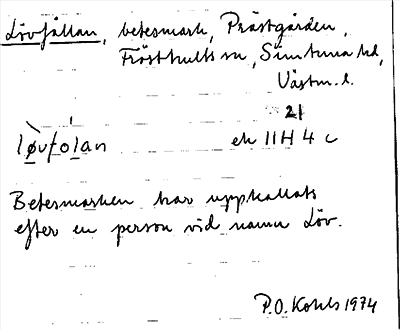 Lövfållan, betesmark, Prästgården,
Frösthults sn, Simtuna hd,
Västm. l.
21
lø̀vfo̩lan ek 11H 4 c
Betesmarken har uppkallats
efter en person vid namn Löv.
P.O. Kohls 1974